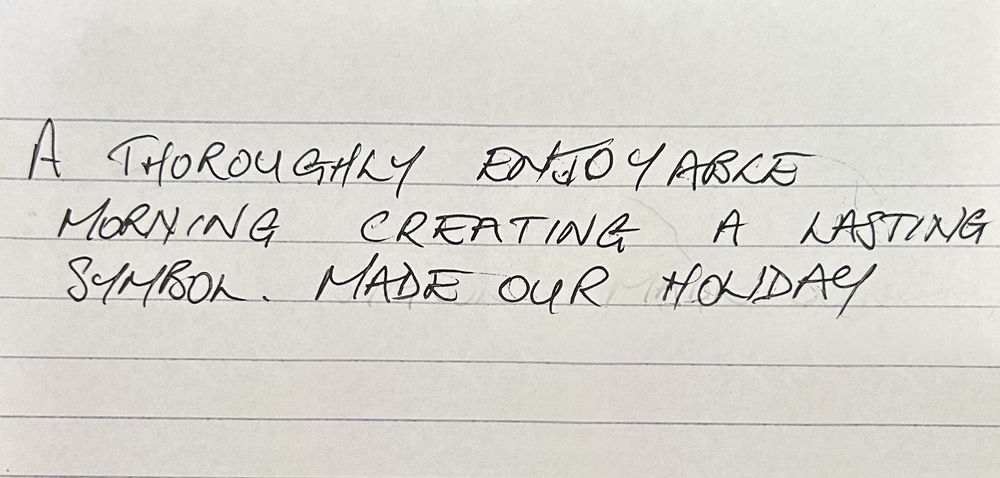 A THOROUGHLY ENJOYABLE
MORNING CREATING A LASTING
SYMBOL. MADE OUR HOLIDAY